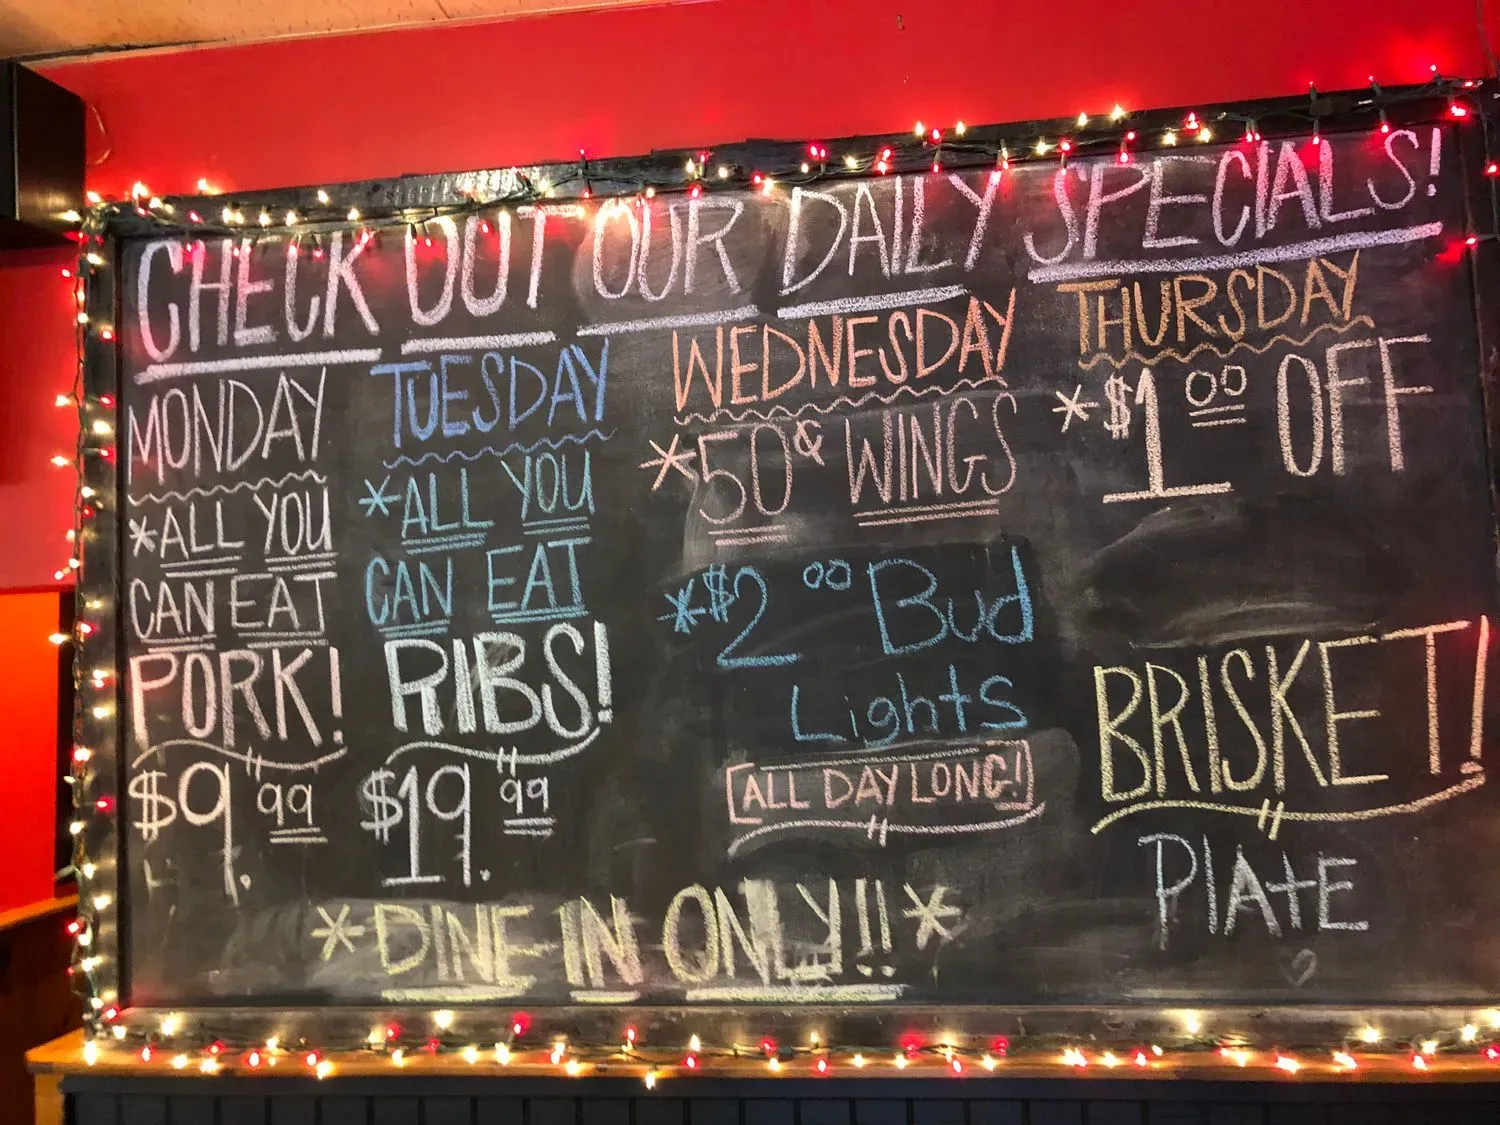 CHECK OUT OUR DAILY SPECIALS!
MONDAY
*ALL YOU
CAN EAT
PORK!
$9.99
TUESDAY
*ALL YOU
CAN EAT
RIBS!
$19.99
WEDNESDAY
*50¢ WINGS
*$2.00 Bud
Lights
[ALL DAY LONG!]
THURSDAY
*$1.00 OFF
BRISKET!
PlAtE
*DINE IN ONLY!!*